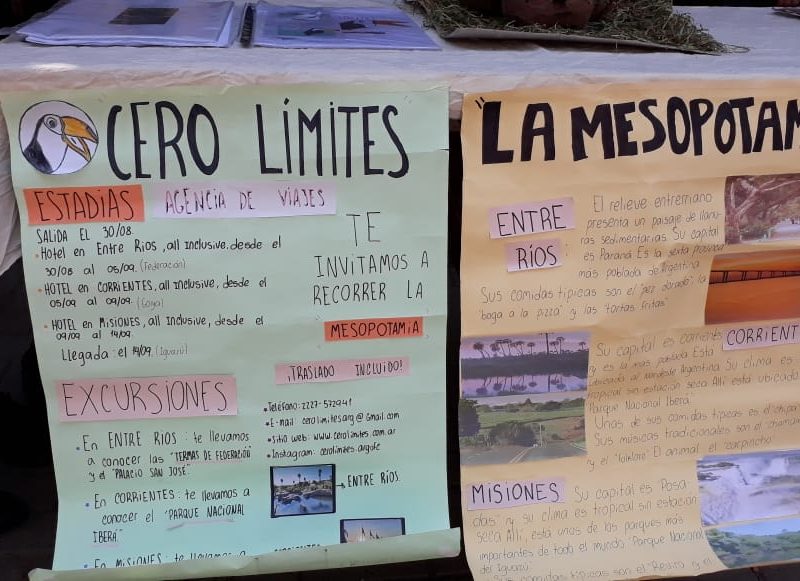 CERO LÍMITES
ESTADIAS
AGENCIA DE VIAJES
SALIDA EL 30/08.
• Hotel en Entre Rios, all inclusive, desde el
30/08 al 05/09. (Federación)
• HOTEL en CORRIENTES, all inclusive, desde el
05/09 al 09/09. (Goya)
• HOTEL en MISIONES, all Inclusive, desde el
09/09 al 14/09.
Llegada: el 14/09. (Iguazú)
TE
INVITAMOS A
RECORRER LA
MESOPOTAMIA
¡TRASLADO INCLUIDO!
EXCURSIONES
• En ENTRE RIOS: te llevamos
a conocer las "TERMAS DE FEDERACIÓN"
y el "PALACIO SAN JOSÉ"
• En CORRIENTES: te llevamos a
conocer el "PARQUE NACIONAL
IBERÁ"
• En MISIONES: te llevamos a
• Teléfono: 2227-572941
• E-mail: cerolimitesarg@gmail.com
• Sitio web: www.cerolimites.com.ar
• Instagram: cerolimites.argofc
→ ENTRE RÍOS.
"LA MESOPOTAM
ENTRE
RÍOS
El relieve entrerriano
presenta un paisaje de llanu-
ras sedimentarias. Su capital
es Paraná. Es la sexta provincia
más poblada de Argentina.
Sus comidas típicas son el "pez dorado", la
"boga a la pizza" y las "tortas fritas".
CORRIENT
Su capital es corrientes
y es la más poblada. Está
ubicada al noroeste Argentina. Su clima es
tropical sin estación seca. Allí está ubicado
Parque Nacional Iberá.
Unas de sus comidas típicas es el "chipá"
Sus músicas tradicionales son el "chamamé"
y el "folklore". El animal el "carpincho".
MISIONES
Su capital es "Posa
das" y su clima es tropical sin estación
seca. Allí, está unos de los parques más
importantes de todo el mundo "Parque Nacional
del Iguazú".
Sus comidas típicas son el "Reviro y el